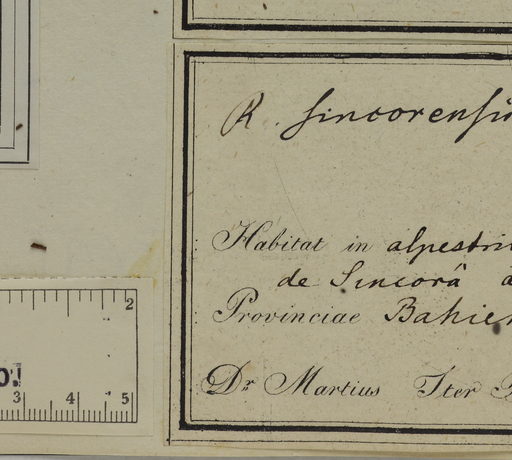 R. sincorensi
Habitat in alpestri
de Sincorá
Provinciae Bahien
Dr Martius Iter
2
o!
3 4 5